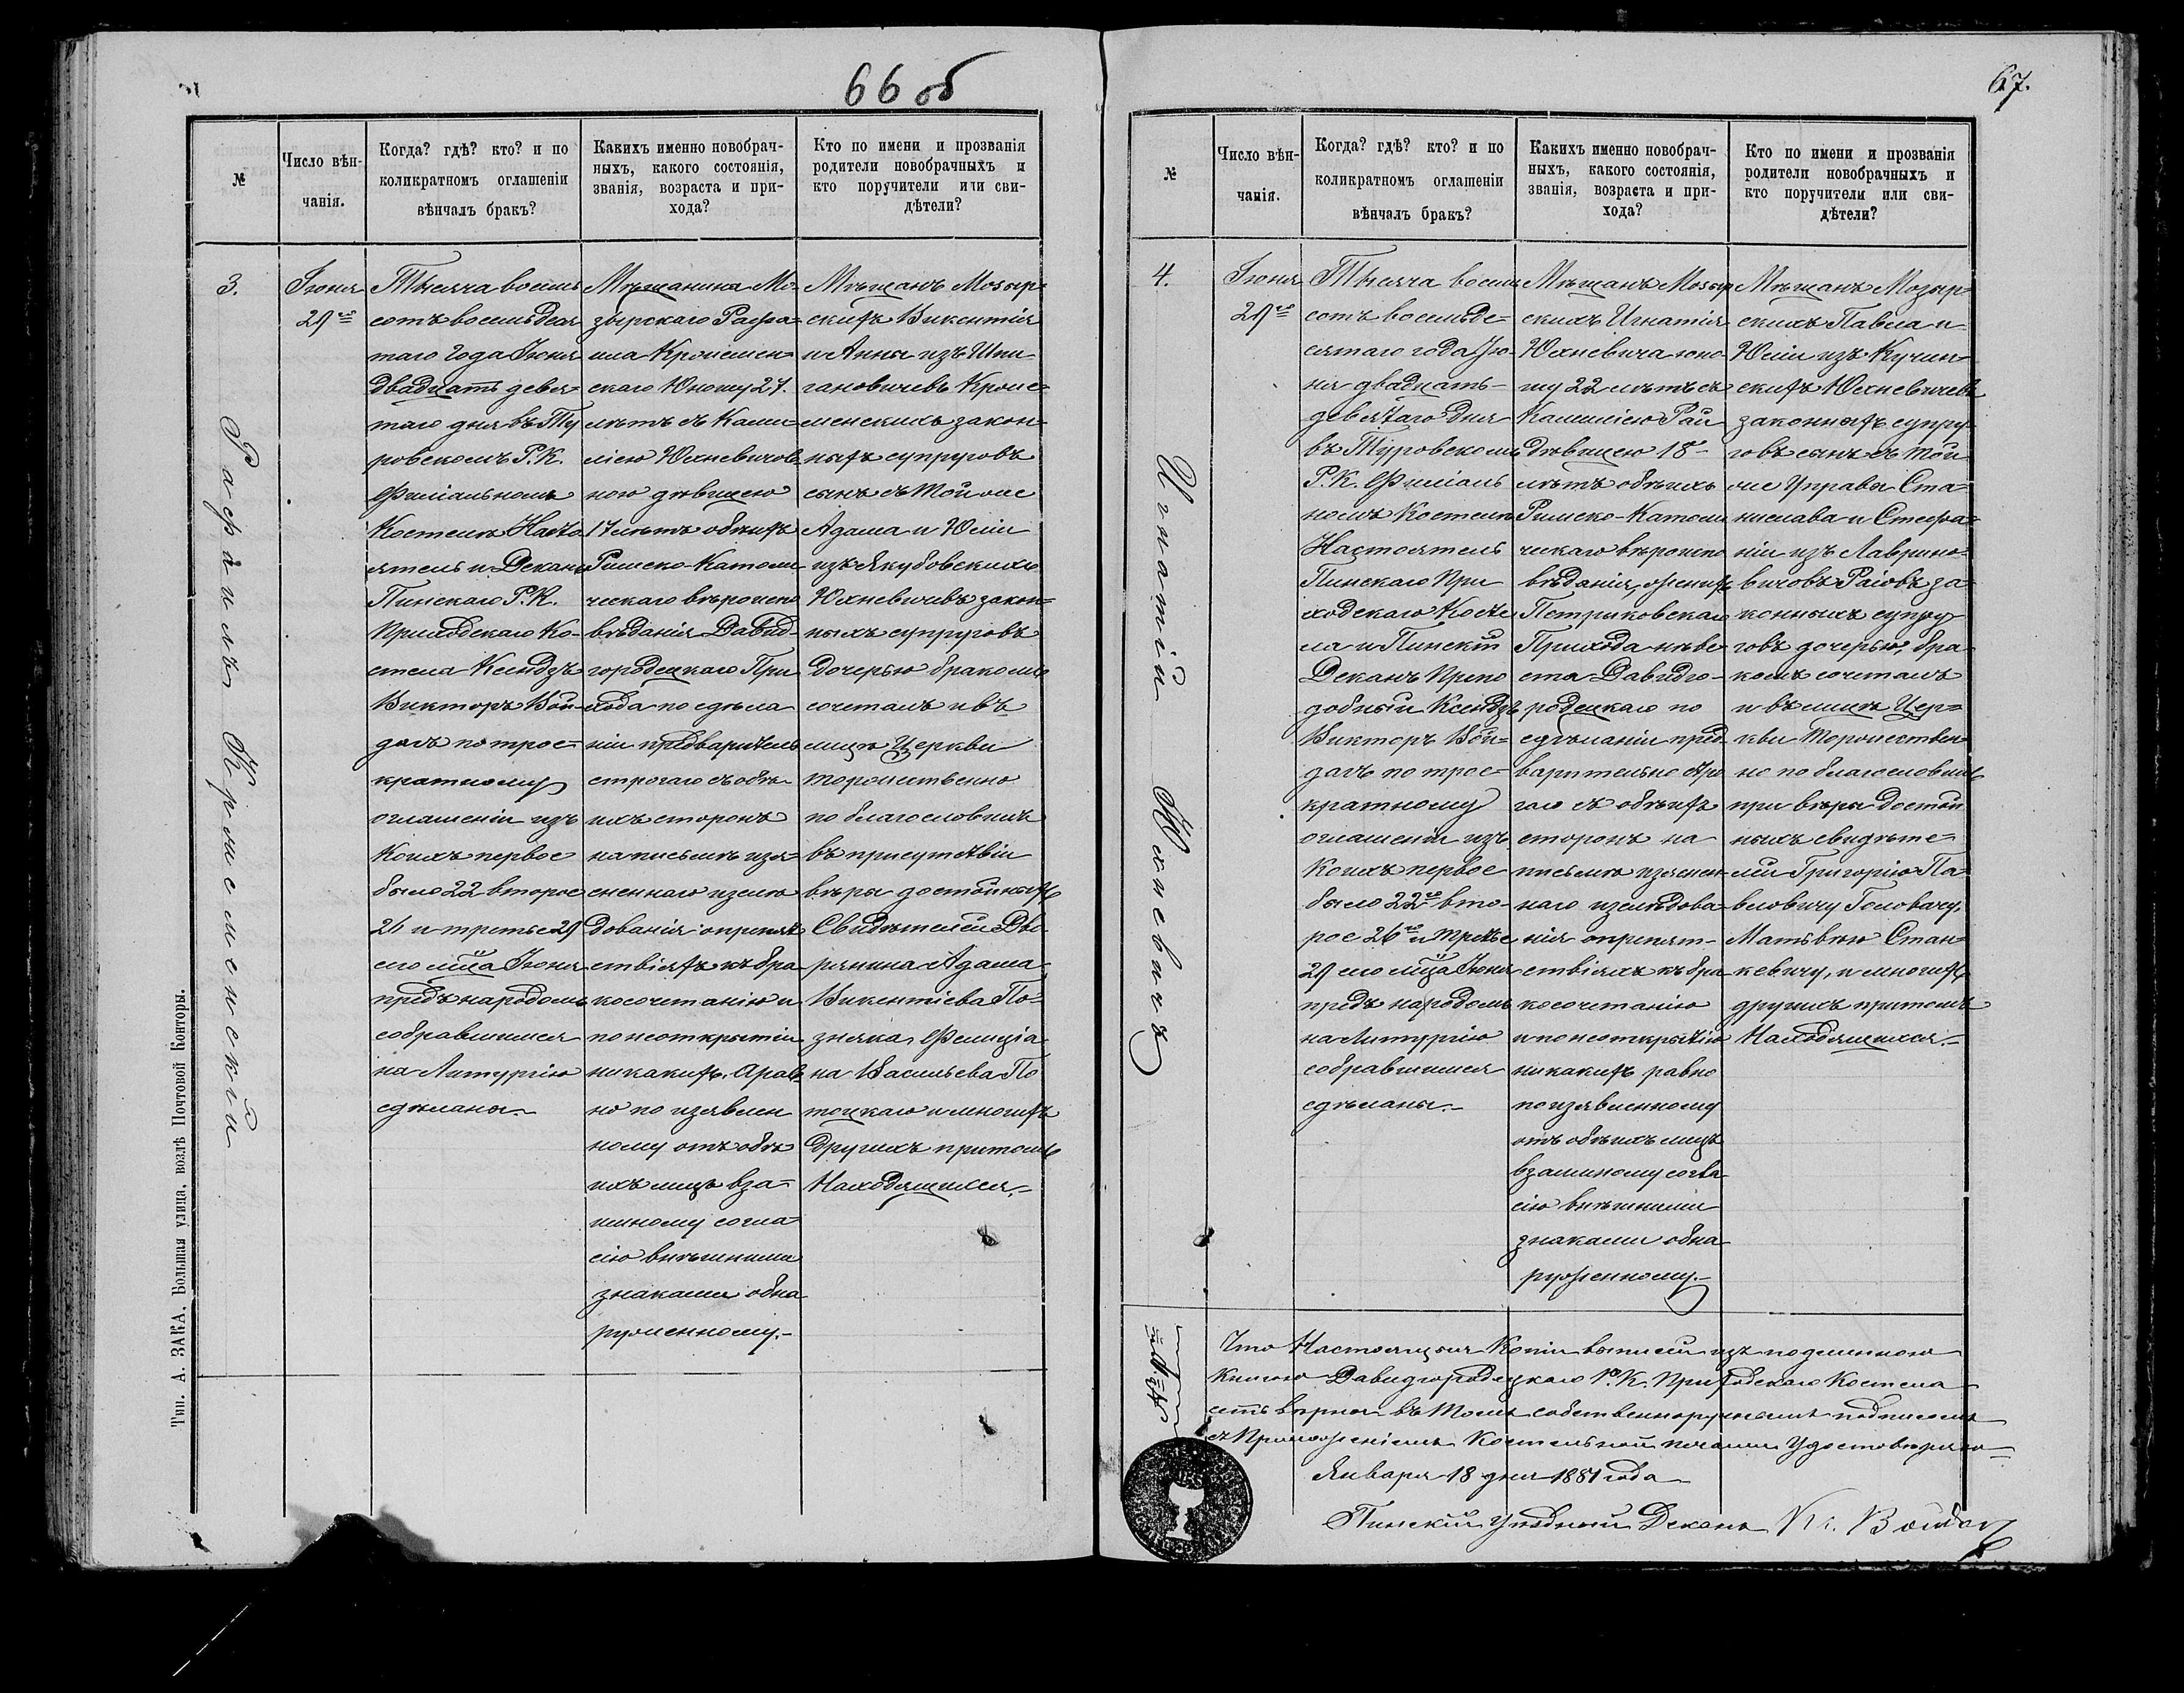 66 об
№
Число вѣн-
чанія.
Когда? гдѣ? кто? и по
коликратномъ оглашеніи
вѣнчалъ бракъ?
Какихъ именно новобрач-
ныхъ, какого состоянія,
званія, возраста и при-
хода?
Кто по имени и прозванія
родители новобрачныхъ и
кто поручители или сви-
дѣтели?
3.
Рафаилъ Кромеменскій
Іюня
29го
Тысяча восемь
сотъ восемьдеся
таго года Іюня
двадцать девя-
таго дня въ Ту
ровскомъ Р.К.
Филіальномъ
Костелѣ Насто
ятель и Деканъ
Пинскаго Р.К.
Приходскаго Ко-
стела Ксендзъ
Викторъ Вой-
далъ по трое-
кратному
оглашеніи изъ
коихъ первое
было 22 второе
26 и третье 29
сего м-ца Іюня
предъ народомъ
собравшимся
на Литургію
сдѣланы.-
Мѣщанина Мо-
зырскаго Рафа-
ила Кромемен-
скаго Юношу 27.
лѣтъ съ Ками-
ліею Юхневичов
ною дѣвицею
17 лѣтъ обѣихъ
Римско-Католи
ческаго вѣроиспо
вѣданія Давид-
городецкаго При
хода по сдѣла
ніи предваритель
строгаго съ обѣ-
ихъ сторонъ
на письмѣ изъя-
сненнаго изслѣ
дованія о препят
ствіяхъ къ бра
косочетанію и
по неоткрытіи
никакихъ, а рав
но по изъявлен
ному отъ обѣ
ихъ лицъ вза-
имному согла
сію внѣшними
знаками обна
руженному.-
Мѣщанъ Мозыр-
скихъ Викентія
и Анны изъ Шпи-
гановичевъ Кроме-
менскихъ закон-
ныхъ супруговъ
сынъ съ той же
Адама и Юліи
изъ Якубовскихъ
Юхневичевъ закон-
ныхъ супруговъ
дочерью бракомъ
сочеталъ и въ
лицѣ Церкви
торжественно
по благословилъ
въ присутствіи
вѣры достойныхъ
Свидѣтелей Дво-
рянина Адама
Викентіева По-
зняка, Фелиціа-
на Васильева По
тоцкаго и многихъ
другихъ притомъ
Находящихся.-
Тип. А. ЗАКА. Большая улица, возлѣ Почтовой Конторы.
67.
№
Число вѣн-
чанія.
Когда? гдѣ? кто? и по
коликратномъ оглашеніи
вѣнчалъ бракъ?
Какихъ именно новобрач-
ныхъ, какого состоянія,
званія, возраста и при-
хода?
Кто по имени и прозванія
родители новобрачныхъ и
кто поручители или сви-
дѣтели?
4.
Игнатій Юхневичъ
Іюня
29го
Тысяча восемь
сотъ восемьде-
сятаго года Ію-
ня двадцать-
девятаго дня
въ Туровскомъ
Р.К. Филіаль
номъ Костелѣ
Настоятель
Пинскаго При
ходскаго Косте
ла и Пинскій
Деканъ Препо
добный Ксендзъ
Викторъ Вой-
далъ по трое-
кратному
оглашеніи изъ
коихъ первое
было 22го вто-
рое 26го и третье
29 сего м-ца Іюня
предъ народомъ
на Литургію
собравшимся
сдѣланы.-
Мѣщанъ Мозыр
скихъ Игнатія
Юхневича юно
шу 22 лѣтъ съ
Камиліею Рай
дѣвицею 18-
лѣтъ обѣихъ
Римско-Католи
ческаго вѣроиспо
вѣданія, жених
Петриковскаго
Прихода невѣ
ста Давидго-
родецкаго по
сдѣланіи пред
варительно стро
гаго съ обѣихъ
сторонъ на
письмѣ изъяснен
наго изслѣдова
нія о препят-
ствіяхъ къ бра
косочетанію
и по неоткрытію
никакихъ равно
по изъявленному
отъ обѣихъ лицъ
взаимному согла
сію внѣшними
знаками обна
руженному.-
Мѣщанъ Мозыр-
скихъ Павла и
Юліи изъ Кучин-
скихъ Юхневичевъ
законныхъ супру
говъ сынъ съ той
же Управы Ста-
нислава и Стефа-
ніи изъ Лаврино-
вичовъ Раіовъ за
конныхъ супру
говъ дочерью, бра
комъ сочеталъ
и въ лицѣ Цер-
кви торжествен-
но по благословилъ
при вѣры достой
ныхъ свидѣте-
ли Григорію Па-
вловичу Головачу,
Матвѣю Стан-
кевичу, и многихъ
другихъ притомъ
Находящихся.-
Что Настоящая Копія выписи изъ подлинною
Книгою Давидгородецкаго Р.К. Приходскаго Костела
есть вѣрна въ томъ собственноручнымъ подписомъ
съ приложеніемъ Костельной печати удостовѣряю-
Января 18 дня 1881 года
Пинскій Уѣздный Деканъ Кс. Войдалъ